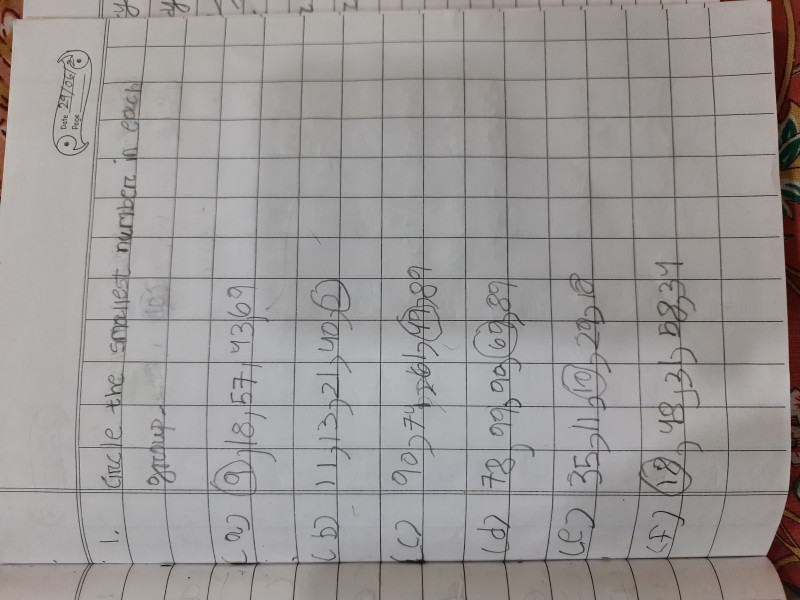 Date 29/06/2
Page
1. Circle the smallest number in each
group.
(a) 9, 18, 57, 43, 69
(b) 11, 13, 21, 40, 5
(c) 90, 74, 61, 47, 89
(d) 78, 99, 99, 69, 89
(e) 35, 11, 10, 29, 18
(f) 18, 48, 31, 58, 34